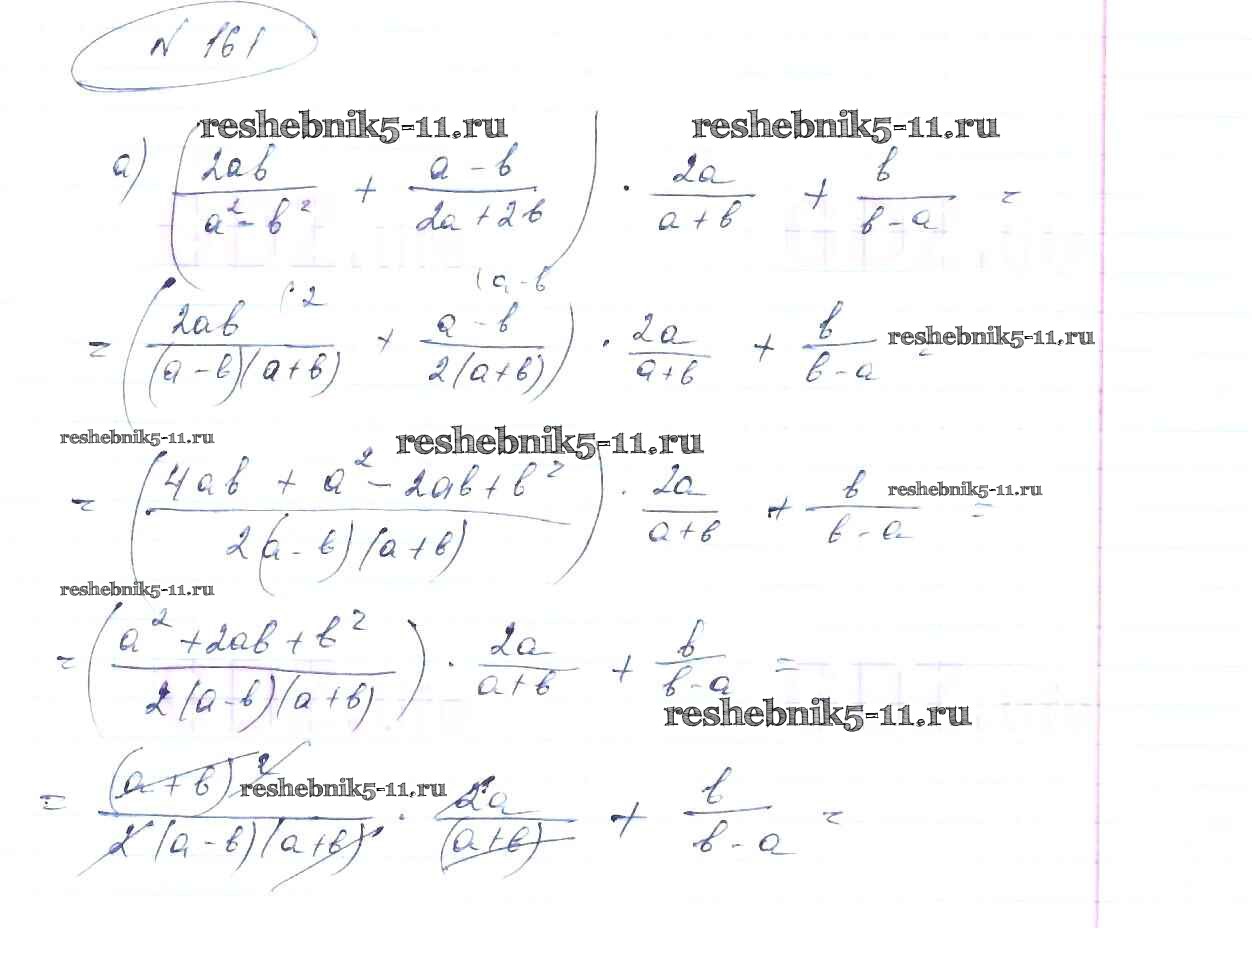 N 161
reshebnik5-11.ru reshebnik5-11.ru
а) (2ab/(a² - b²) + (a - b)/(2a + 2b)) · 2a/(a + b) + b/(b - a) =
= (2ab/((a - b)(a + b)) (·2 + (a - b)/(2(a + b)) (a - b) · 2a/(a + b) + b/(b - a) = reshebnik5-11.ru
reshebnik5-11.ru reshebnik5-11.ru
= ((4ab + a² - 2ab + b²)/(2(a - b)(a + b))) · 2a/(a + b) + b/(b - a) = reshebnik5-11.ru
reshebnik5-11.ru
= ((a² + 2ab + b²)/(2(a - b)(a + b))) · 2a/(a + b) + b/(b - a) =
reshebnik5-11.ru
= (a + b)²/(2(a - b)(a + b)) · 2a/(a + b) + b/(b - a) = reshebnik5-11.ru